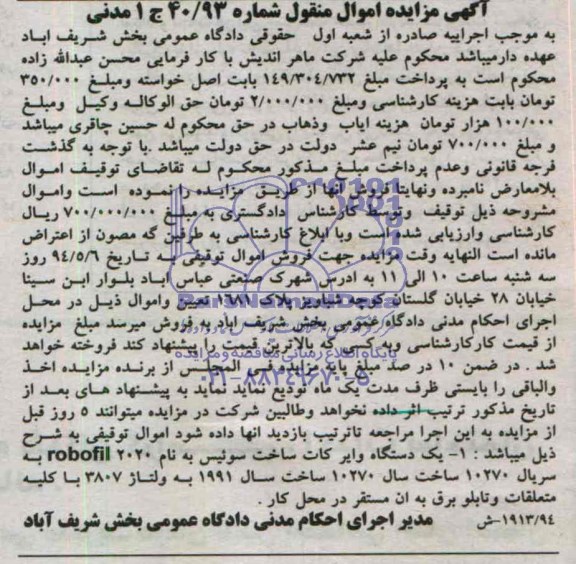 آگهی مزایده اموال منقول شماره ۴۰/۹۳ ج ۱ مدنی
به موجب اجراییه صادره از شعبه اول حقوقی دادگاه عمومی بخش شریف اباد
عهده دارمیباشد محکوم علیه شرکت ماهر اندیش با کار فرمایی محسن عبدالله زاده
محکوم است به پرداخت مبلغ ۱۴۹/۳۰۴/۷۳۲ بابت اصل خواسته ومبلغ ۳۵۰/۰۰۰
تومان بابت هزینه کارشناسی ومبلغ ۲/۰۰۰/۰۰۰ تومان حق الوکاله وکیل ومبلغ
۱۰۰/۰۰۰ هزار تومان هزینه ایاب وذهاب در حق محکوم له حسین چاقری میباشد
و مبلغ ۷۰۰/۰۰۰ تومان نیم عشر دولت در حق دولت میباشد .با توجه به گذشت
فرجه قانونی وعدم پرداخت مبلغ مذکور محکوم له تقاضای توقیف اموال
بلامعارض نامبرده ونهایتا فروش آنها از طریق مزایده را نموده است واموال
مشروحه ذیل توقیف وتوسط کارشناس دادگستری به مبلغ ۷۰۰/۰۰۰/۰۰۰ ریال
کارشناسی وارزیابی شده است وبا ابلاغ کارشناسی به طرفین گه مصون از اعتراض
مانده است النهایه وقت مزایده جهت فروش اموال توقیفی به تاریخ ۹۴/۵/۶ روز
سه شنبه ساعت ۱۰ الی ۱۱ به ادرس شهرک صنعتی عباس اباد بلوار ابن سینا
خیابان ۲۸ خیابان گلستان کوچه شباویز پلاک ۱۶۸۱ تعیین واموال ذیل در محل
اجرای احکام مدنی دادگاه عمومی بخش شریف اباد به فروش میرسد مبلغ مزایده
از قیمت کارکارشناسی وبه کسی که بالاترین قیمت را پیشنهاد کند فروخته خواهد
شد . در ضمن ۱۰ در صد مبلغ پایه مزایده فی المجلس از برنده مزایده اخذ
والباقی را بایستی ظرف مدت یک ماه تودیع نماید نماید به پیشنهاد های بعد از
تاریخ مذکور ترتیب اثر داده نخواهد وطالبین شرکت در مزایده میتوانند ۵ روز قبل
از مزایده به این اجرا مراجعه تاترتیب بازدید انها داده شود اموال توقیفی به شرح
ذیل میباشد : ۱- یک دستگاه وایر کات ساخت سوئیس به نام robofil ۲۰۲۰ به
سریال ۱۰۲۷۰ ساخت سال ۱۰۲۷۰ ساخت سال ۱۹۹۱ به ولتاژ ۳۸۰۷ با کلیه
متعلقات وتابلو برق به ان مستقر در محل کار .
۱۹۱۳/۹۴-ش مدیر اجرای احکام مدنی دادگاه عمومی بخش شریف آباد
پایگاه اطلاع رسانی مناقصه و مزایده
۰۲۱-۸۸۳۴۹۶۷۰-۵